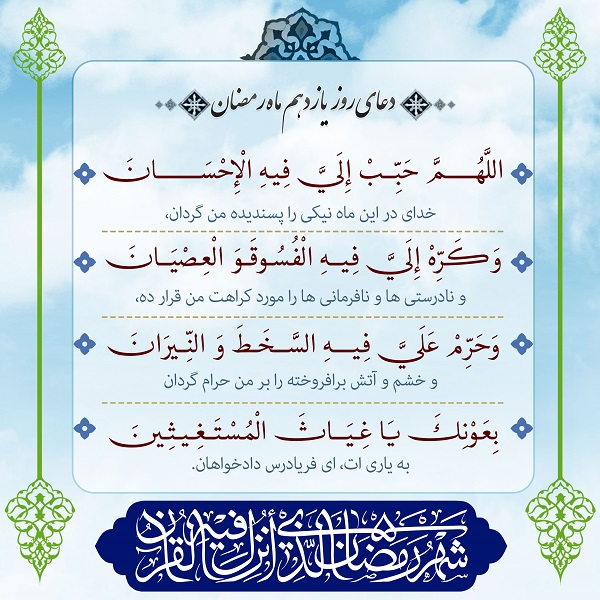 دعای روز یازدهم ماه رمضان
اللَّهُمَّ حَبِّبْ إِلَيَّ فِيهِ الْإِحْسَانَ
خدای در این ماه نیکی را پسندیده من گردان،
وَكَرِّهْ إِلَيَّ فِيهِ الْفُسُوقَ وَ الْعِصْيَانَ
و نادرستی ها و نافرمانی ها را مورد کراهت من قرار ده،
وَحَرِّمْ عَلَيَّ فِيهِ السَّخَطَ وَ النِّيرَانَ
و خشم و آتش برافروخته را بر من حرام گردان
بِعَوْنِكَ يَا غِيَاثَ الْمُسْتَغِيثِينَ
به یاری ات، ای فریادرس دادخواهان.
شَهْرُ رَمَضَانَ الَّذِي أُنْزِلَ فِيهِ الْقُرْآنُ